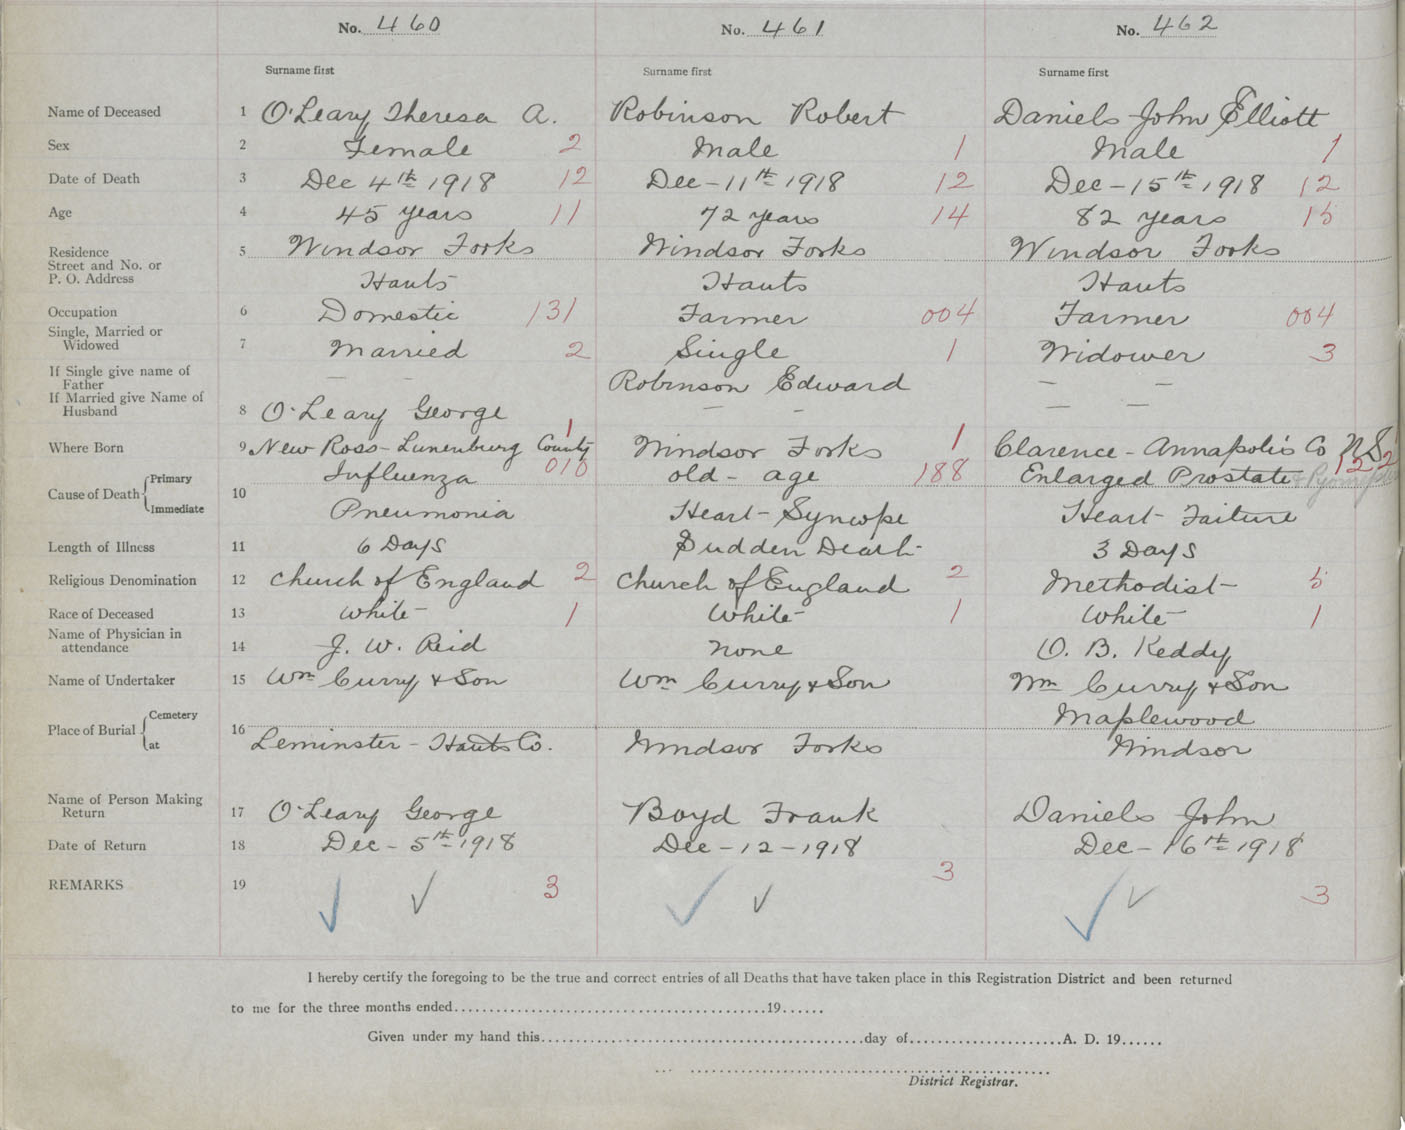 No. 460 No. 461 No. 462
Surname first Surname first Surname first
Name of Deceased 1 O'Leary Theresa A. Robinson Robert Daniels John Elliott
Sex 2 Female 2 Male 1 Male 1
Date of Death 3 Dec 4th 1918 12 Dec - 11th 1918 12 Dec - 15th 1918 12
Age 4 45 years 11 72 years 14 82 years 15
Residence
Street and No. or 5 Windsor Forks Windsor Forks Windsor Forks
P. O. Address Hants Hants Hants
Occupation 6 Domestic 131 Farmer 004 Farmer 004
Single, Married or
Widowed 7 Married 2 Single 1 Widower 3
If Single give name of
Father — — Robinson Edward — —
If Married give Name of
Husband 8 O'Leary George — — — —
Where Born 9 New Ross - Lunenburg County 1 Windsor Forks 1 Clarence - Annapolis Co N.S. 1
Cause of Death Primary Influenza 010 old - age 188 Enlarged Prostate 122
10
Immediate Pneumonia Heart - Syncope Heart - Failure
Length of Illness 11 6 Days Sudden Death 3 Days
Religious Denomination 12 Church of England 2 Church of England 2 Methodist 5
Race of Deceased 13 White 1 White 1 White 1
Name of Physician in
attendance 14 J. W. Reid none O. B. Keddy
Name of Undertaker 15 Wm Curry & Son Wm Curry & Son Wm Curry & Son
Place of Burial Cemetery Maplewood
16
at Leminster - Hants Co. Windsor Forks Windsor
Name of Person Making
Return 17 O'Leary George Boyd Frank Daniels John
Date of Return 18 Dec - 5th 1918 Dec - 12 - 1918 Dec - 16th 1918
REMARKS 19 3 3 3
I hereby certify the foregoing to be the true and correct entries of all Deaths that have taken place in this Registration District and been returned
to me for the three months ended..........19......
Given under my hand this..........day of..........A. D. 19......
District Registrar.